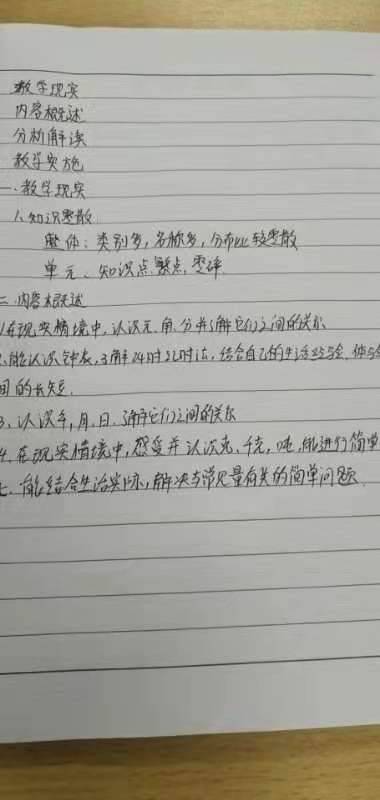 教学现实
内容概述
分析解读
教学实施
一、教学现实
1、知识零散
整体：类别多，名称多，分布比较零散
单元、知识点繁杂，零碎
二、内容概述
1、在现实情境中，认识元、角、分并了解它们之间的关系
2、能认识钟表，了解24时记时法，结合自己的生活经验，体验
间的长短
3、认识年、月、日，了解它们之间的关系
4、在现实情境中，感受并认识克、千克、吨，能进行简单
能结合生活实际，解决与常见量有关的简单问题